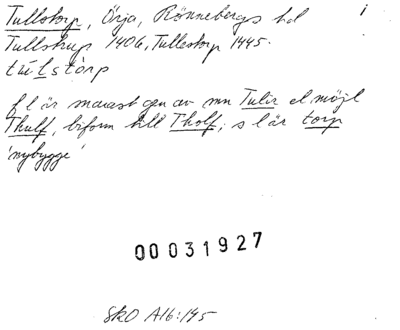 Tullstorp, Örja, Rönnebergs hd
Tullstrup 1406, Tullestorp 1445.
tu̇Lstȯrp
f l är snarast gen av mn Tulir el möjl
Thulf, biform till Tholf; s l är torp
'nybygge'
00031927
SkO A16:145